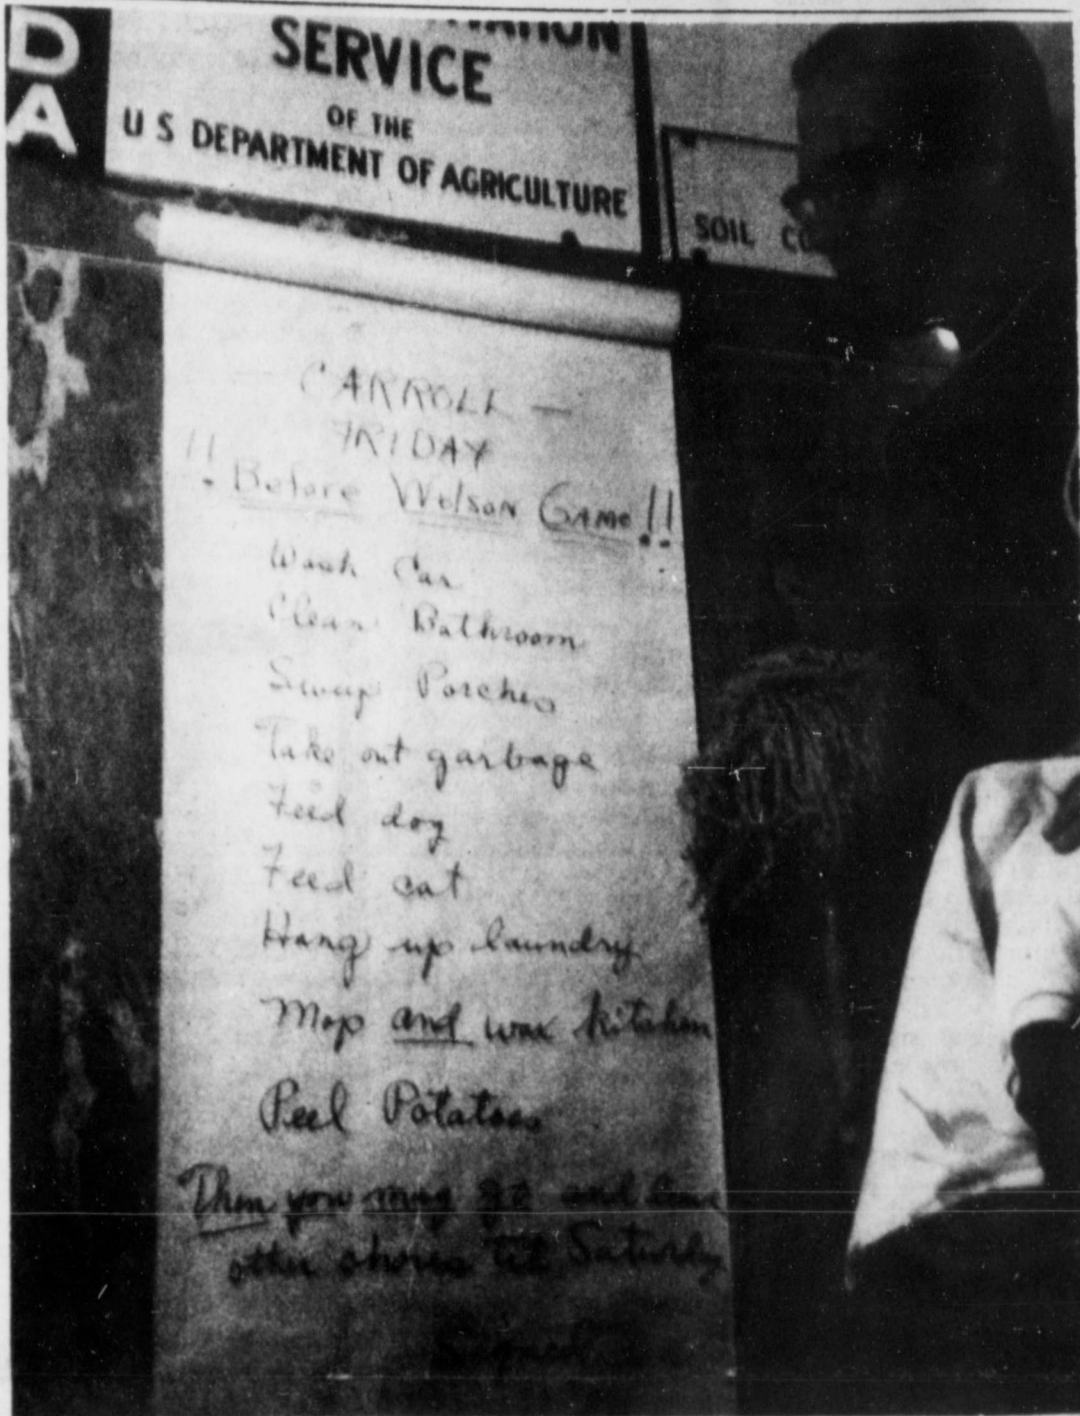 D
A
SERVICE
OF THE
U S DEPARTMENT OF AGRICULTURE
SOIL
CARROLL —
FRIDAY
!! Before Wilson GAME!!
Wash Car
Clean Bathroom
Sweep Porches
Take out garbage
Feed dog
Feed cat
Hang up laundry
Mop and wax kitchen
Peel Potatoes
Then you may go and leave
other chores til Saturday
Signed